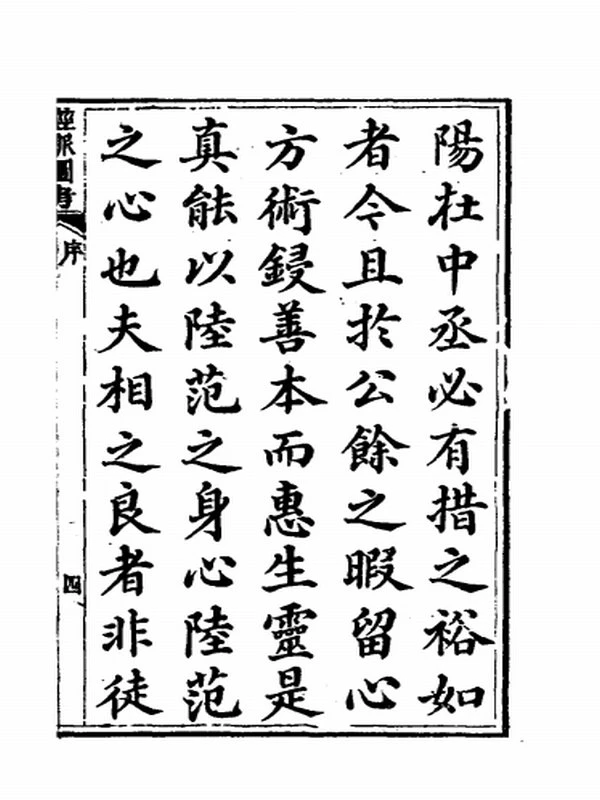 陽杜中丞必有措之裕如
者今且於公餘之暇留心
方術鋟善本而惠生靈是
真能以陸范之身心陸范
之心也夫相之良者非徒
經脈圖考
序
四